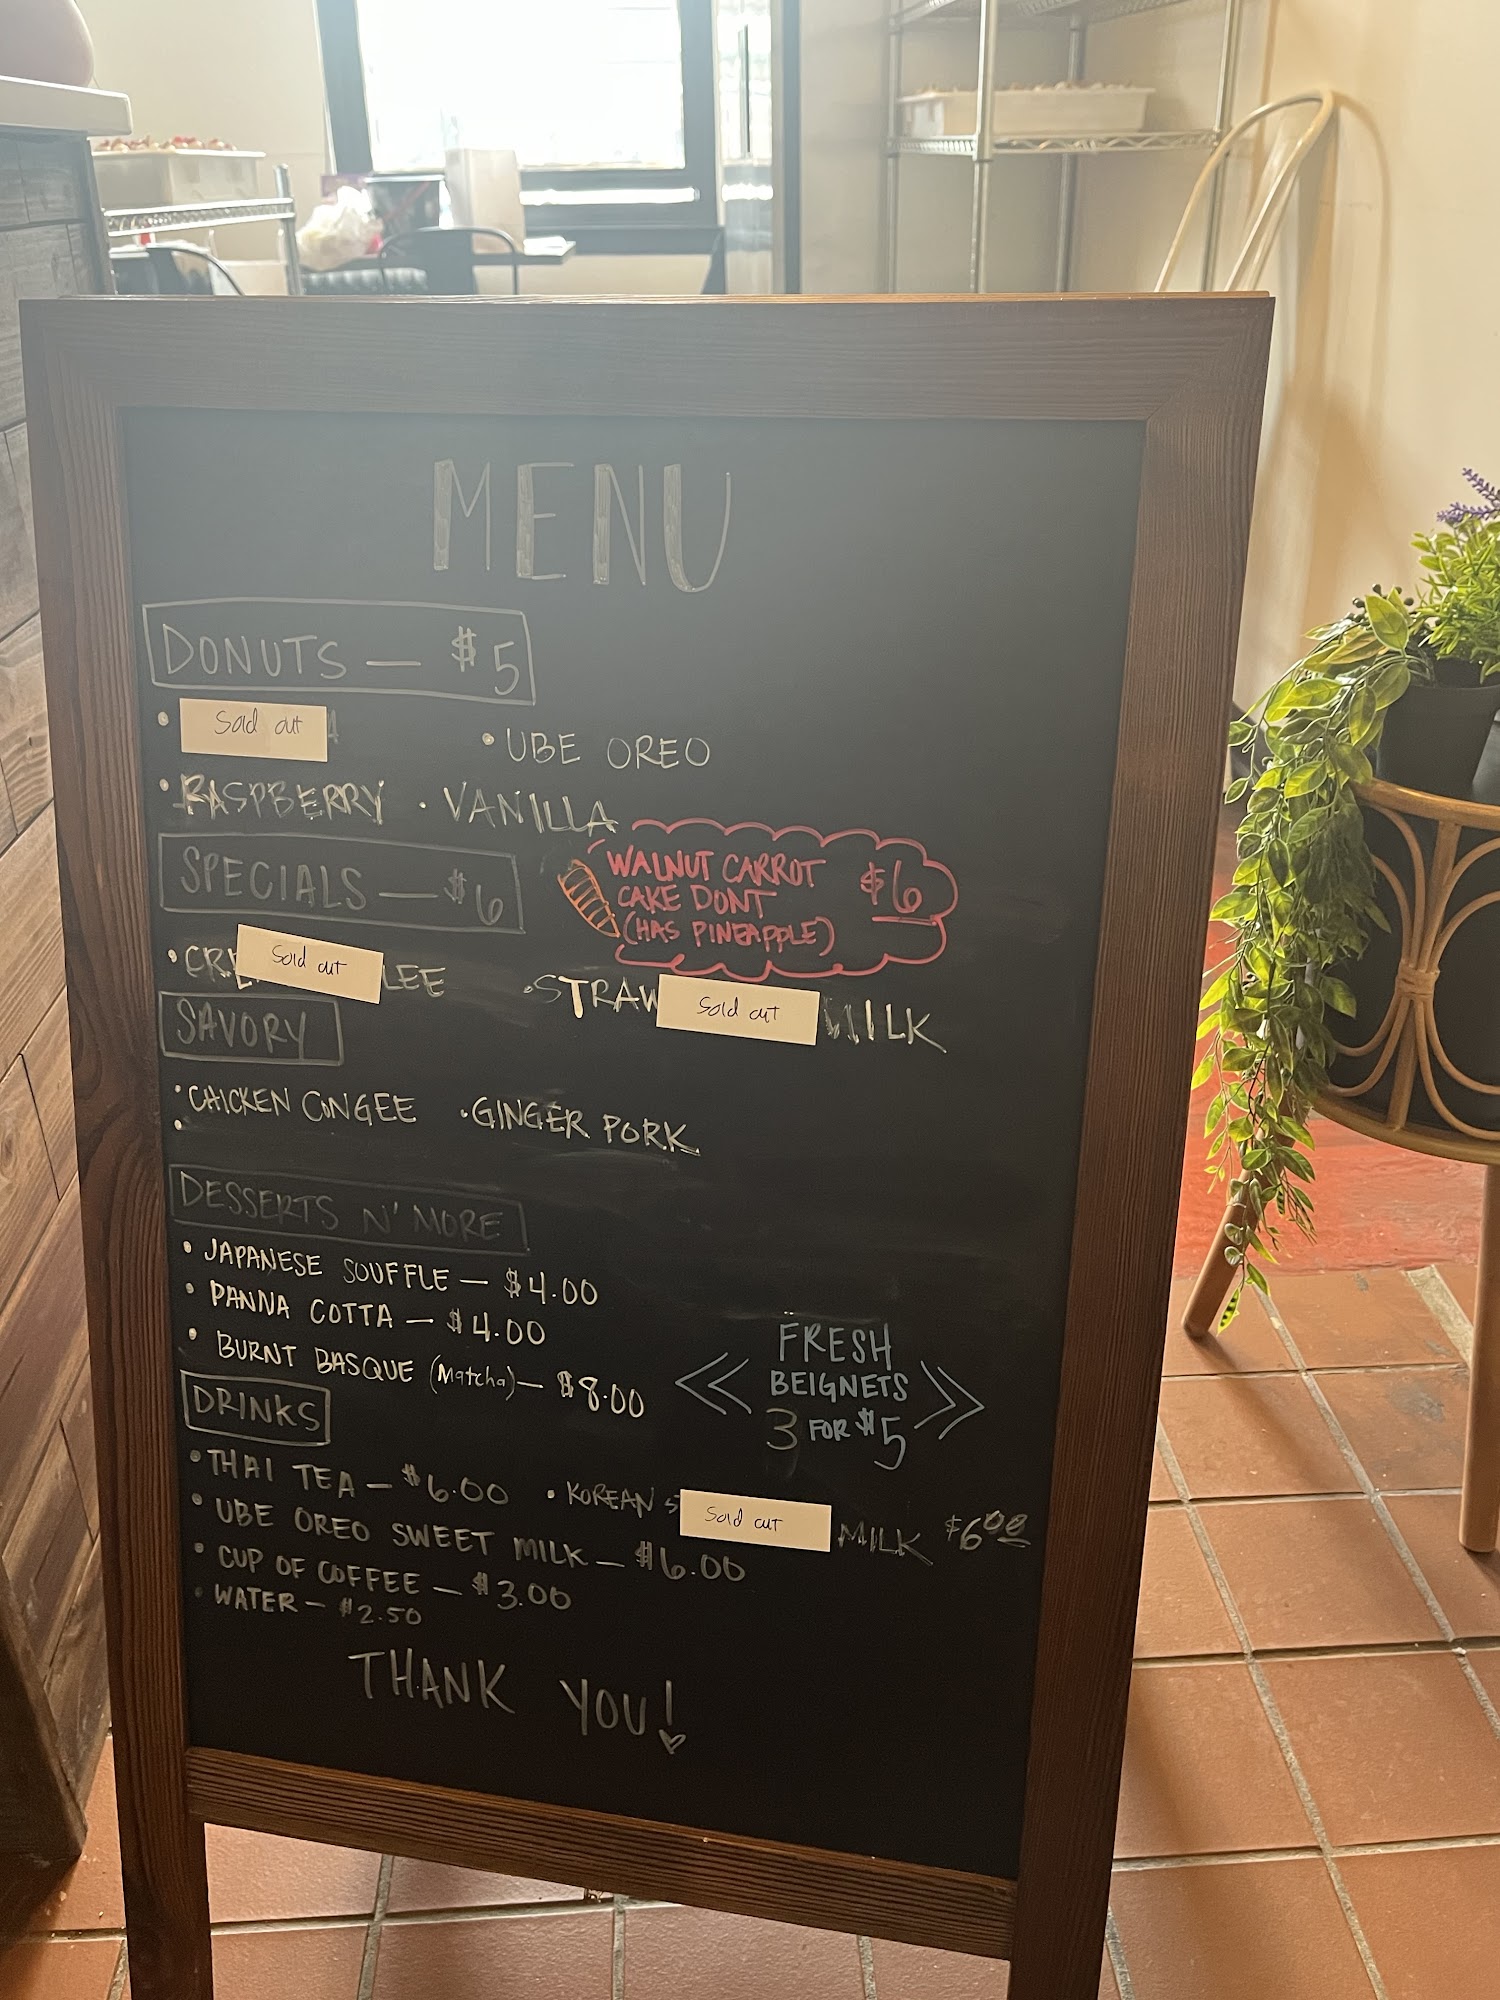 MENU
DONUTS — $5
• Sold out A • UBE OREO
• RASPBERRY • VANILLA
SPECIALS — $6
WALNUT CARROT
CAKE DONT
(HAS PINEAPPLE)
$6
• CRE Sold out LEE • STRAW Sold out MILK
SAVORY
• CHICKEN CONGEE • GINGER PORK
•
DESSERTS N' MORE
• JAPANESE SOUFFLE — $4.00
• PANNA COTTA — $4.00
• BURNT BASQUE (Matcha) — $8.00
<< FRESH >>
BEIGNETS
3 FOR $5
DRINKS
• THAI TEA — $6.00 • KOREAN S Sold out MILK $6.00
• UBE OREO SWEET MILK — $6.00
• CUP OF COFFEE — $3.00
• WATER — $2.50
THANK YOU!